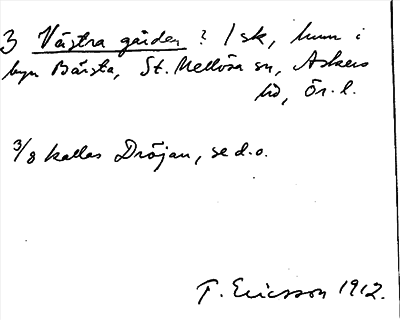 3 Västra gården ? 1 sk, hmn i
byn Bärsta, St. Mellösa sn, Askers
hd, Ör. l.
3/8 kallas Dröjan, se d.o.
T. Ericsson 1912.